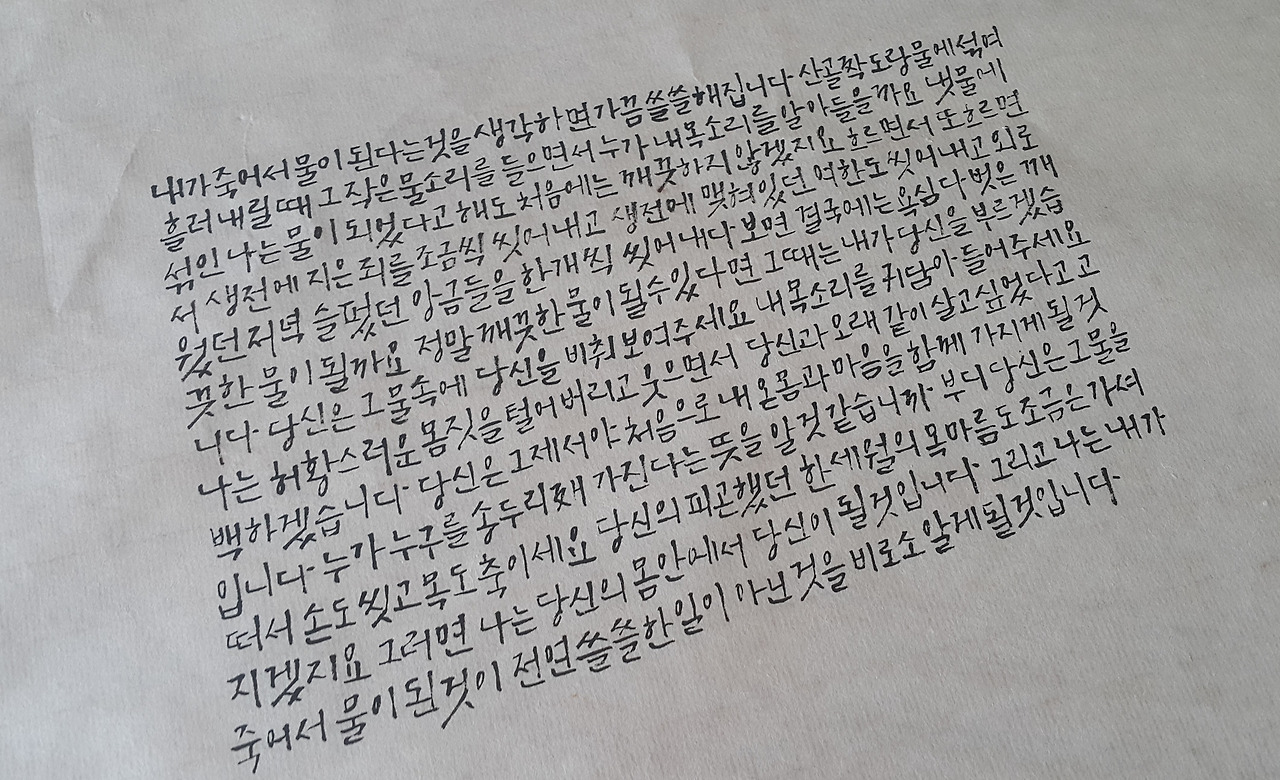 내가 죽어서 물이 된다는 것을 생각하면 가끔 쓸쓸해집니다 산골짝 도랑물에 섞여
흘러내릴 때 그 작은 물소리를 들으면서 누가 내 목소리를 알아들을까요 냇물에
섞인 나는 물이 되었다고 해도 처음에는 깨끗하지 않겠지요 흐르면서 또 흐르면
서 생전에 지은 죄를 조금씩 씻어내고 생전에 맺혀있던 여한도 씻어내고 외로
웠던 저녁 슬펐던 앙금들을 한개씩 씻어내다 보면 결국에는 욕심 다 벗은 깨
끗한 물이 될까요 정말 깨끗한 물이 될 수 있다면 그때는 내가 당신을 부르겠습
니다 당신은 그 물 속에 당신을 비춰 보여주세요 내 목소리를 귀담아 들어주세요
나는 허황스러운 몸짓을 털어버리고 웃으면서 당신과 오래 같이 살고 싶었다고 고
백하겠습니다 당신은 그제서야 처음으로 내 온몸과 마음을 함께 가지게 될 것
입니다 누가 누구를 송두리째 가진다는 뜻을 알 것 같습니까 부디 당신은 그 물을
떠서 손도 씻고 목도 축이세요 당신의 피곤했던 한 세월의 목마름도 조금은 가셔
지겠지요 그러면 나는 당신의 몸 안에서 당신이 될 것입니다 그리고 나는 내가
죽어서 물이 된 것이 전연 쓸쓸한 일이 아닌 것을 비로소 알게 될 것입니다